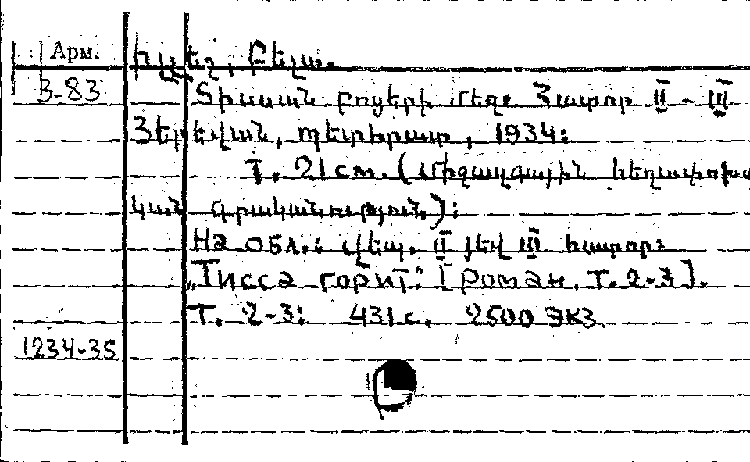 Арм. Իլլեշ, Բելա.
3-83 Տիսսան բոցերի մեջ Հատոր II - III
Յերեվան, պետհրատ, 1934:
Т. 21 см. (Միջազգային հեղափոխա
կան գրականություն.):
На обл.: Վեպ. II յեվ III հատոր:
„Тисса горит." [Роман. Т. 2-3].
Т. 2-3: 431 с. 2500 экз.
1234-35